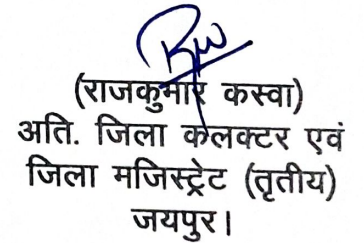 (राजकुमार कस्वा)
अति. जिला कलक्टर एवं
जिला मजिस्ट्रेट (तृतीय)
जयपुर।